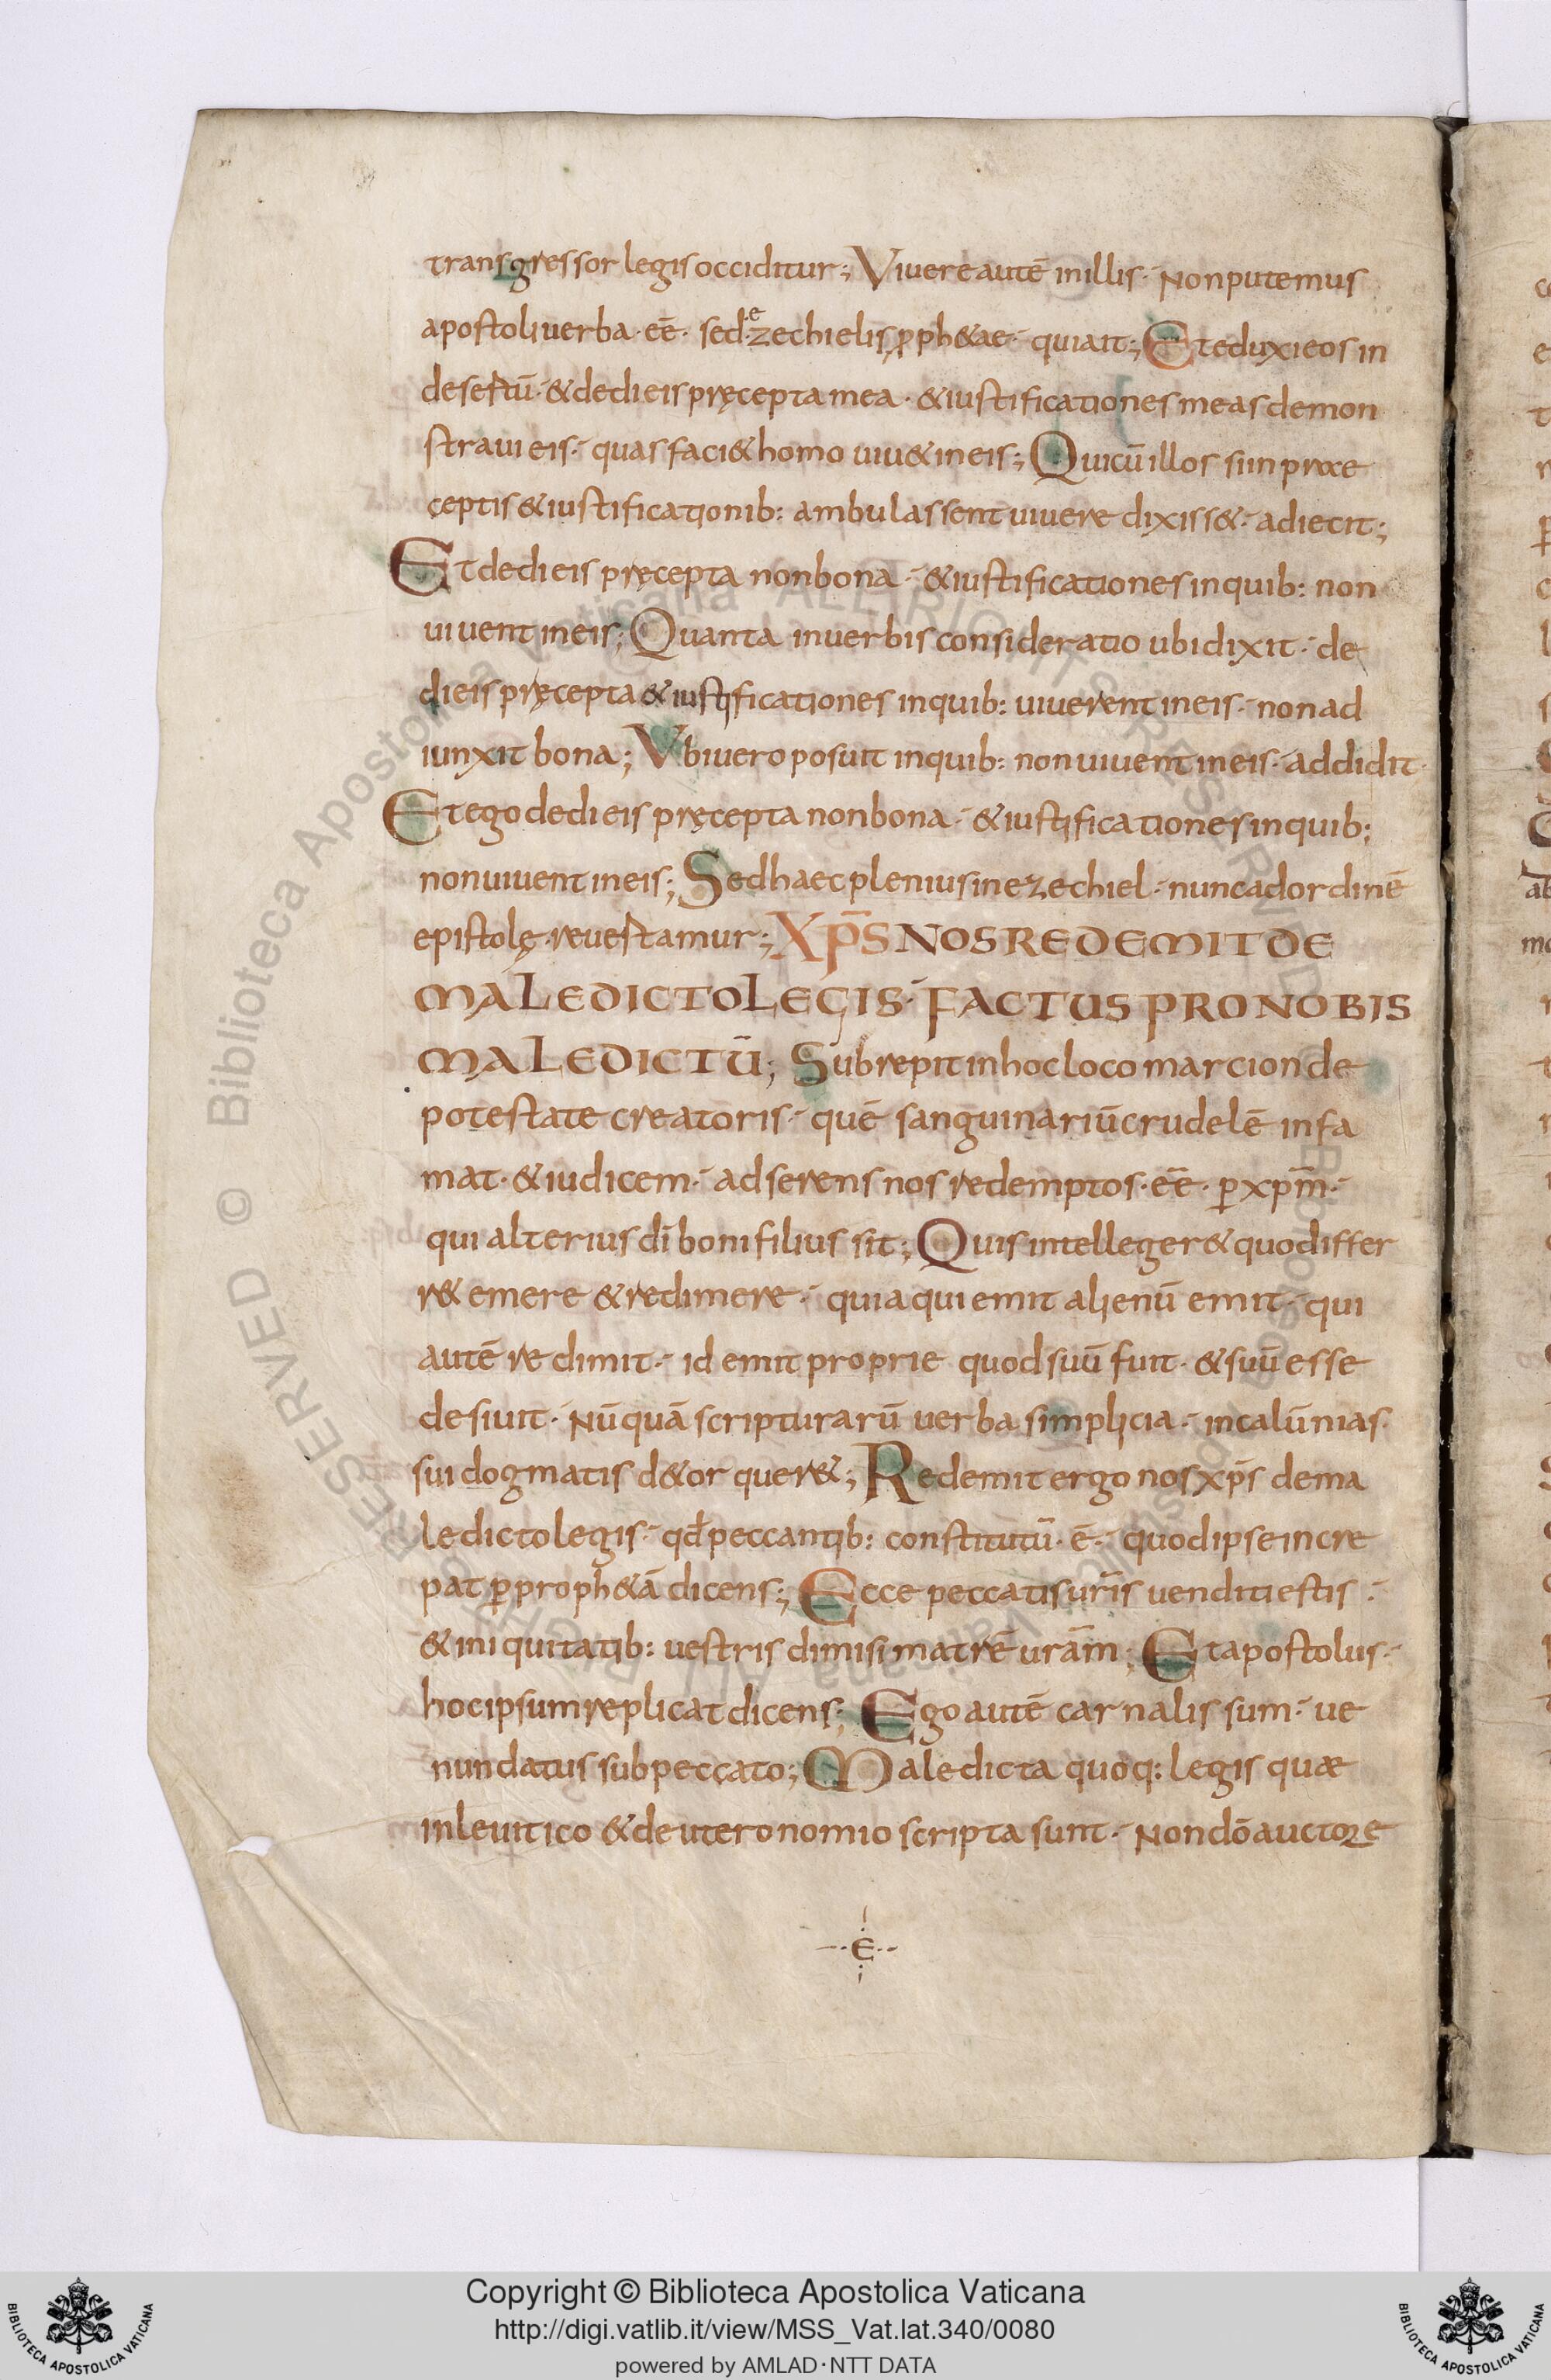 transgressor legis occiditur; Viuere autē in illis· Non putemus
apostoli uerba· eē· sed· ezechielis pphetae· qui ait; Et eduxi eos in
desertū· & dedi eis pręcepta mea· & iustificationes meas demon
straui eis· quas faci& homo uiu& in eis; Qui cū illos si in prae
ceptis & iustificationib: ambulassent uiuere dixiss&· adiecit;
Et dedi eis pręcepta non bona· & iustificationes in quib: non
uiuent in eis; Quanta in uerbis consideratio ubi dixit· de
di eis pręcepta & iustificationes in quib: uiuerent in eis· non ad
iunxit bona; Vbi uero posuit in quib: non uiuent in eis· addidit·
Et ego dedi eis pręcepta non bona· & iustificationes in quib;
non uiuent in eis; Sed haec plenius in ezechiel· nunc ad ordinē
epistolę· reuertamur; XP̄S NOS REDEMIT DE
MALEDICTO LEGIS· FACTUS PRO NOBIS
MALEDICTŪ; Subrepit in hoc loco marcion de
potestate creatoris· quē sanguinariū crudelē infa
mat· & iudicem· adserens nos redemptos· eē· p xp̄m·
qui alterius dī boni filius sit; Qui si intelleger& quo differ
r& emere & redimere· quia qui emit alienū emit· qui
autē redimit· id emit proprie quod suū fuit· & suū esse
desiuit· Nūquā scripturarū uerba simplicia· in calūnias·
sui dogmatis d&orquer&; Redemit ergo nos xp̄s de ma
ledicto legis· qđ peccantib: constitutū· ē· quod ipse incre
pat p proph&ā dicens; Ecce peccatis ur̄is uenditi estis·
& iniquitatib: uestris dimisi matrē urām; Et apostolus·
hoc ipsum replicat dicens; Ego autē carnalis sum· ue
nundatus sub peccato; Maledicta quoq: legis quæ
in leuitico & deuteronomio scripta sunt· Non dō auctore
·E·
Copyright © Biblioteca Apostolica Vaticana
http://digi.vatlib.it/view/MSS_Vat.lat.340/0080
powered by AMLAD·NTT DATA
BIBLIOTECA APOSTOLICA VATICANA
BIBLIOTECA APOSTOLICA VATICANA